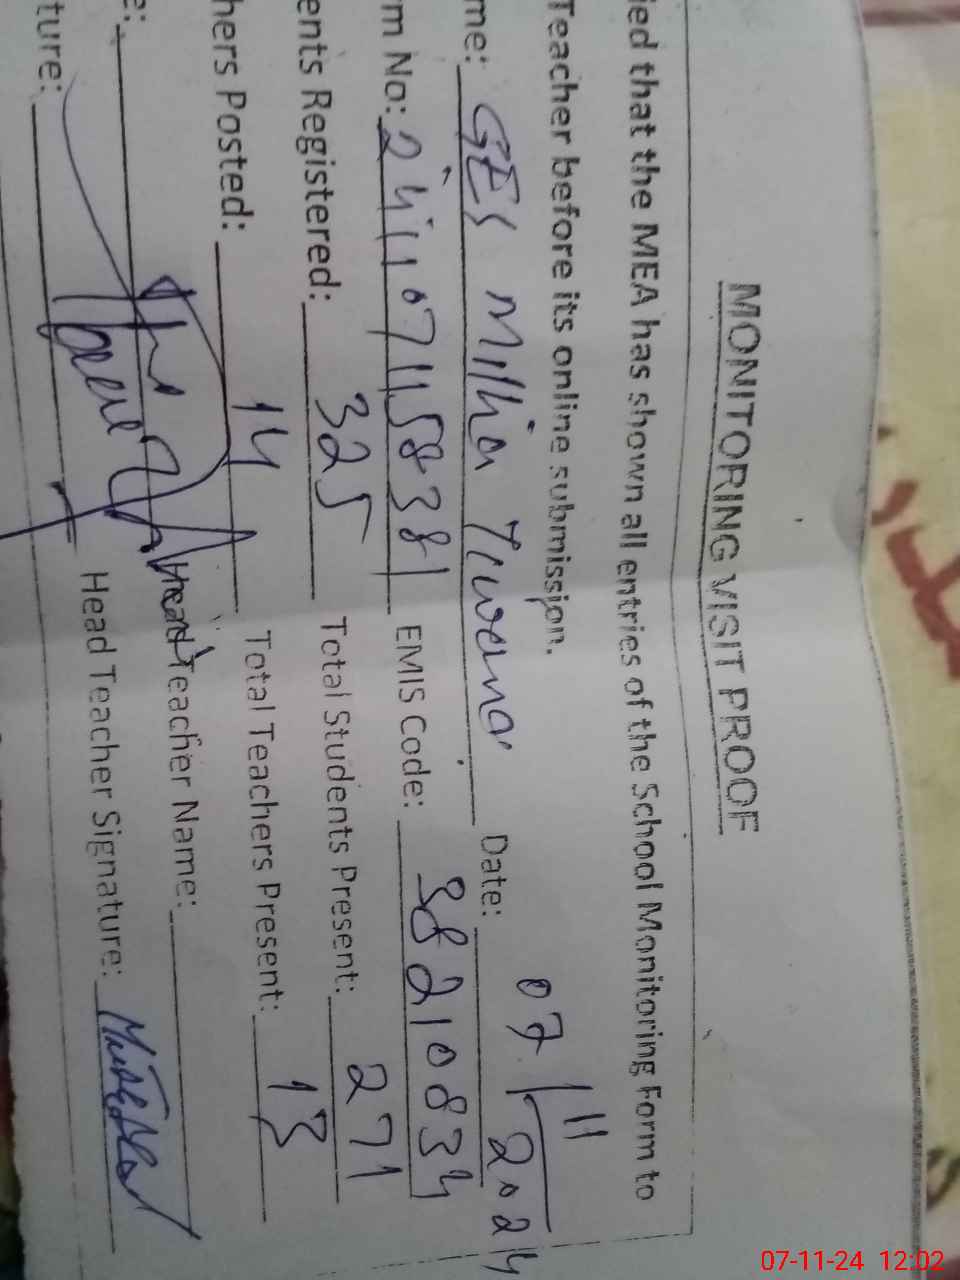 MONITORING VISIT PROOF
ied that the MEA has shown all entries of the School Monitoring Form to
Teacher before its online submission.
me: GES Milha Tiwana Date: 07/11/2024
rm No: 2411071158381 EMIS Code: 38210834
ents Registered: 325 Total Students Present: 271
hers Posted: 14 Total Teachers Present: 13
e: Head Teacher Name:
ture: Head Teacher Signature:
07-11-24 12:02